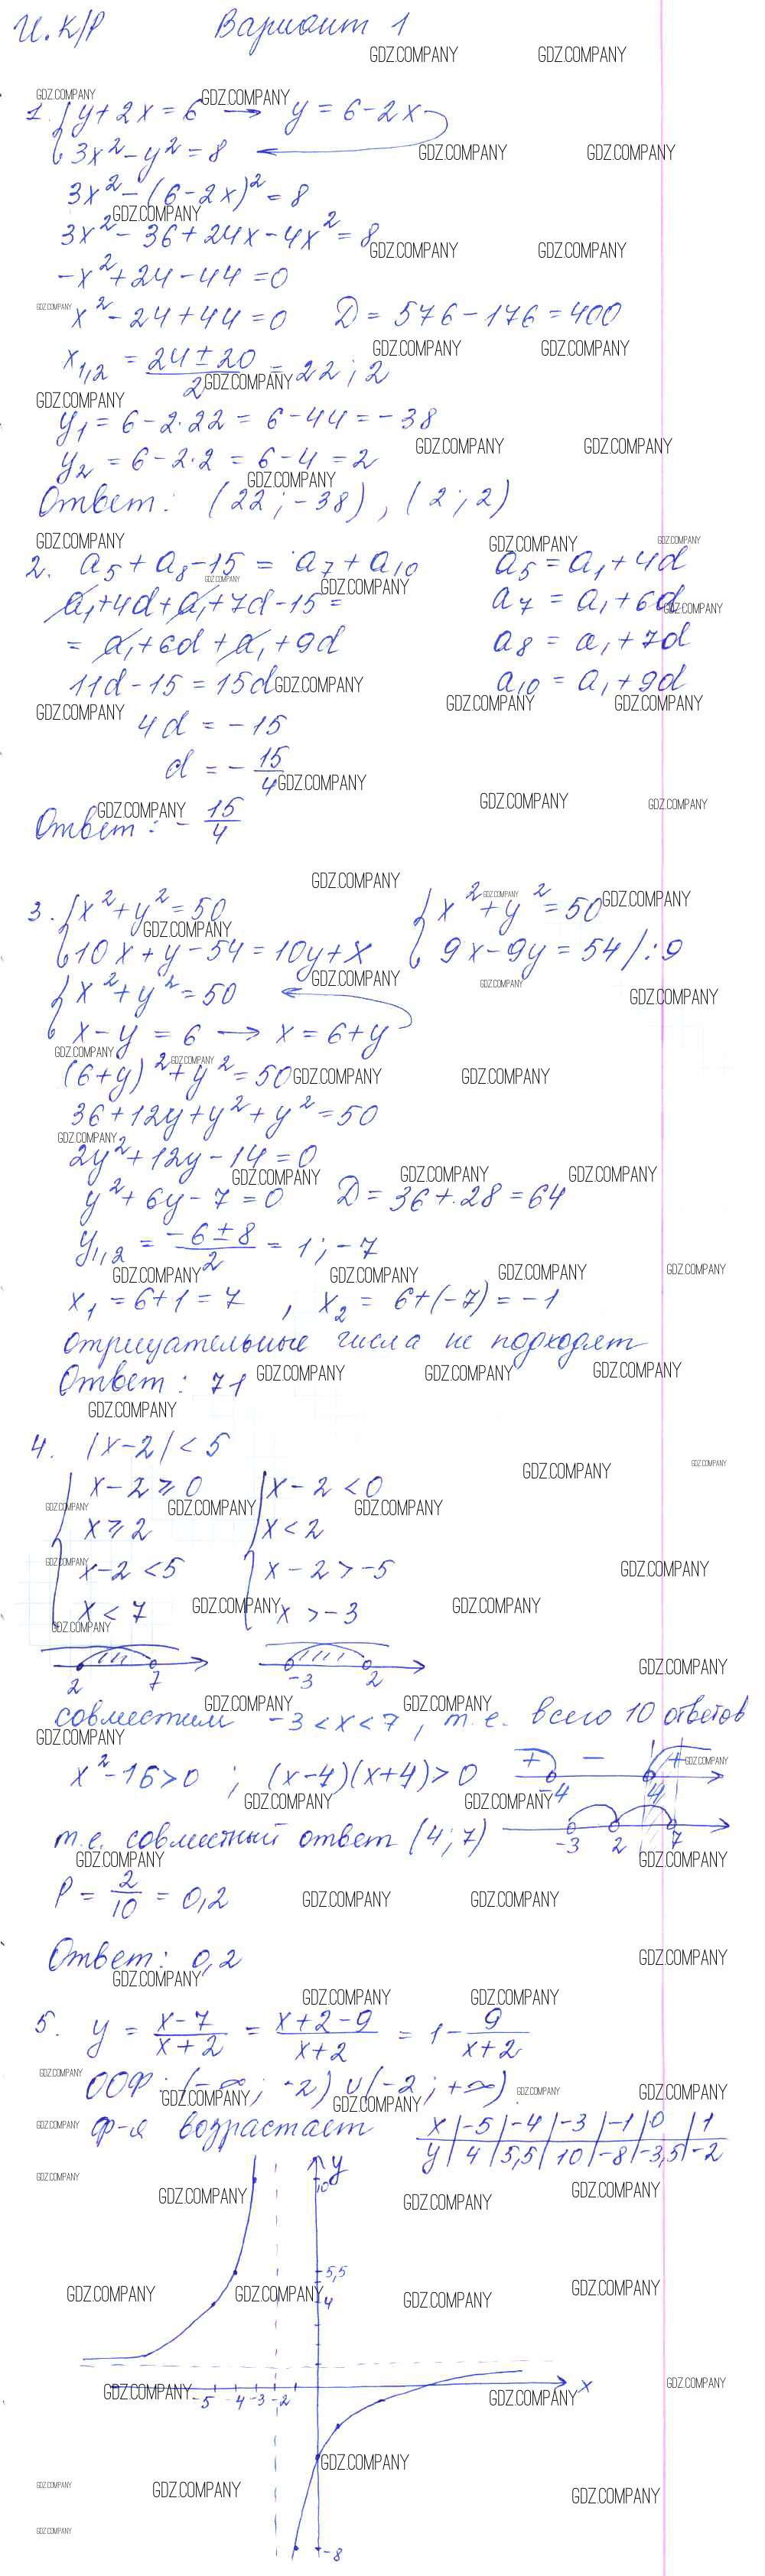 И. К/Р Вариант 1
1. { y + 2x = 6 → y = 6 - 2x
3x² - y² = 8
3x² - (6 - 2x)² = 8
3x² - 36 + 24x - 4x² = 8
-x² + 24 - 44 = 0
x² - 24 + 44 = 0 D = 576 - 176 = 400
x₁,₂ = (24 ± 20)/2 = 22 ; 2
y₁ = 6 - 2·22 = 6 - 44 = -38
y₂ = 6 - 2·2 = 6 - 4 = 2
Ответ: (22 ; -38), (2 ; 2)
2. a₅ + a₈ - 15 = a₇ + a₁₀ a₅ = a₁ + 4d
a₁ + 4d + a₁ + 7d - 15 = a₇ = a₁ + 6d
= a₁ + 6d + a₁ + 9d a₈ = a₁ + 7d
11d - 15 = 15d a₁₀ = a₁ + 9d
4d = -15
d = -15/4
Ответ: -15/4
3. { x² + y² = 50 { x² + y² = 50
10x + y - 54 = 10y + x 9x - 9y = 54 /:9
{ x² + y² = 50
x - y = 6 → x = 6 + y
(6 + y)² + y² = 50
36 + 12y + y² + y² = 50
2y² + 12y - 14 = 0
y² + 6y - 7 = 0 D = 36 + 28 = 64
y₁,₂ = (-6 ± 8)/2 = 1 ; -7
x₁ = 6 + 1 = 7 , x₂ = 6 + (-7) = -1
отрицательные числа не подходят
Ответ: 71
4. |x - 2| < 5
{ x - 2 ≥ 0 { x - 2 < 0
x ≥ 2 x < 2
x - 2 < 5 x - 2 > -5
x < 7 x > -3
2 7 -3 2
совместим -3 < x < 7, т.е. всего 10 ответов
x² - 16 > 0 ; (x - 4)(x + 4) > 0 + - +
-4 4
т.е. совместный ответ (4 ; 7) -3 2 7
P = 2/10 = 0,2
Ответ: 0,2
5. y = (x - 7)/(x + 2) = (x + 2 - 9)/(x + 2) = 1 - 9/(x + 2)
ООФ: (-∞ ; -2) ∪ (-2 ; +∞)
ф-я возрастает x | -5 | -4 | -3 | -1 | 0 | 1
y | 4 | 5,5 | 10 | -8 | -3,5 | -2
y
10
5,5
4
-5 -4 -3 -2 x
-8
GDZ.COMPANY